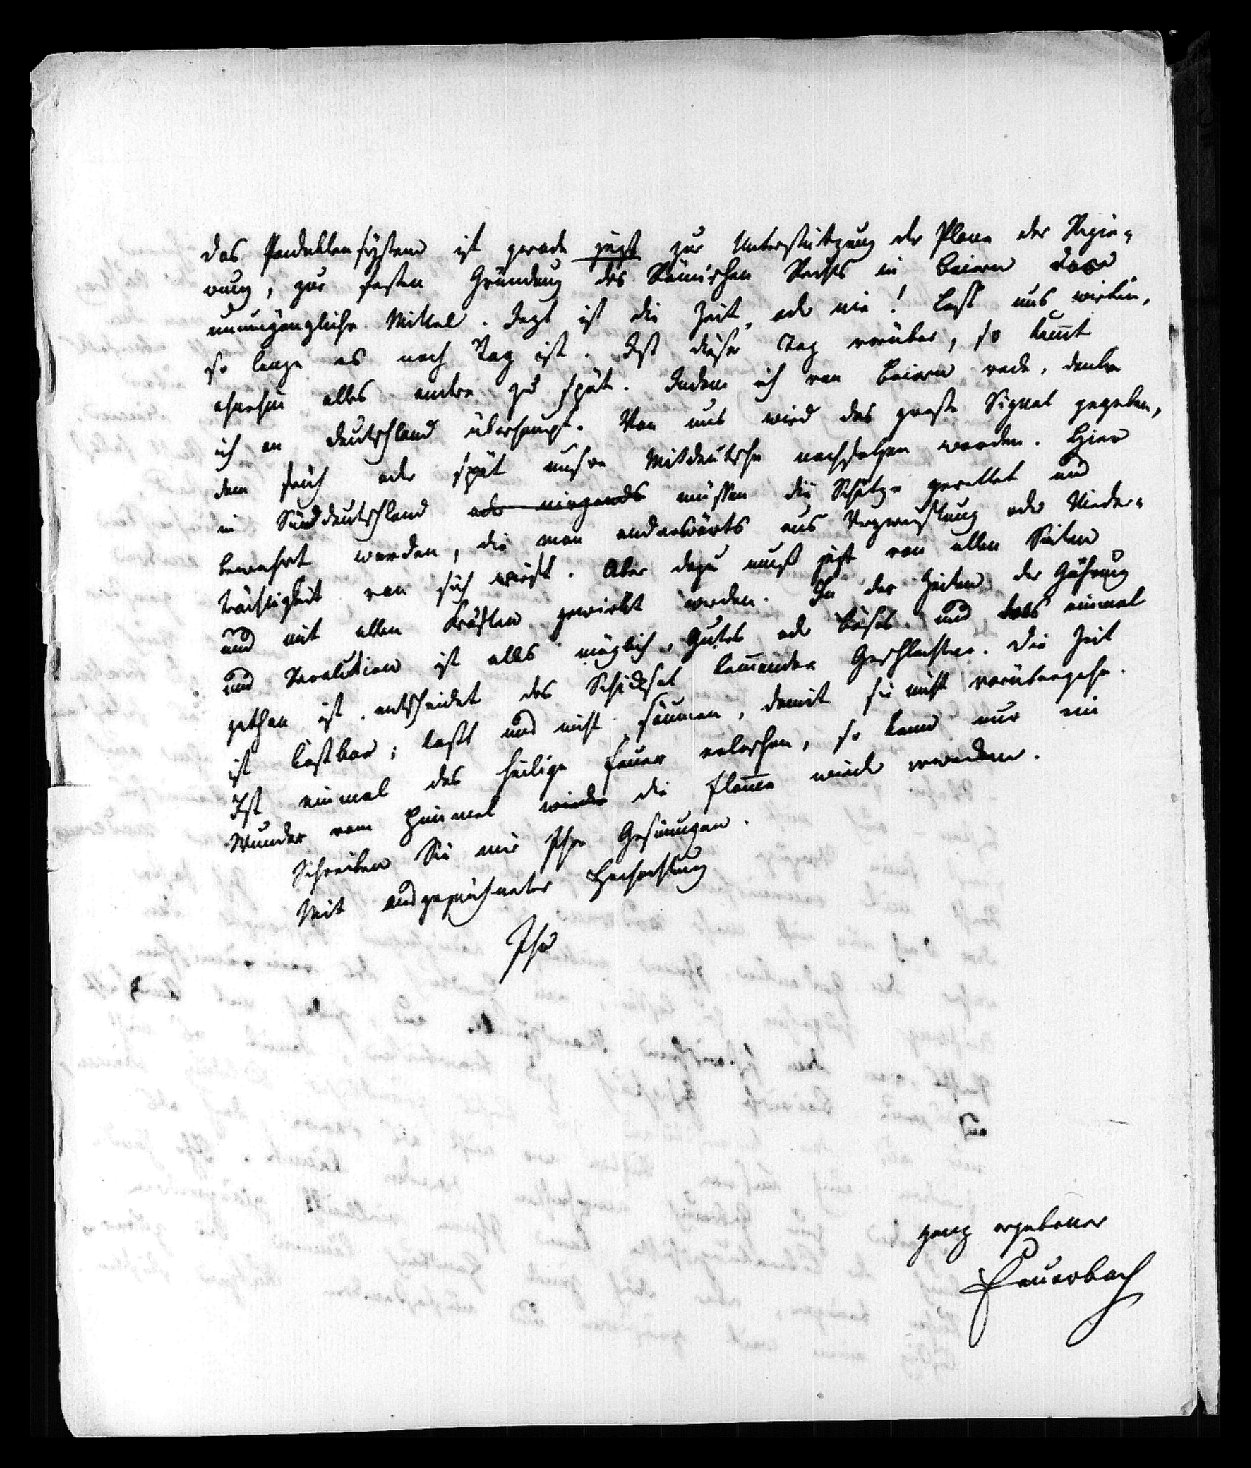 das Pandektensystem ist gerade jezt zur Unterstützung der Plane der Regie-
rung, zur festen Gründung des Römischen Rechts in Baiern das
unumgängliche Mittel. Jezt ist die Zeit, oder nie! Laßt uns wirken,
so lange es noch Tag ist. Ist dieser Tag vorüber, so kommt
ohnehin alles andre zu spät. Indem ich von Baiern rede, denke
ich an Deutschland überhaupt. Von uns wird das große Signal gegeben,
dem früh oder spät unsre Mitdeutsche nachfolgen werden. Hier
in Süddeutschland oder nirgends müssen die Schätze gerettet und
bewahrt werden, die man anderswärts aus Verzweiflung oder Nieder-
trächtigkeit von sich wirft. Aber dazu muß jezt von allen Seiten
und mit allen Kräften gewirkt werden. In den Zeiten der Gährung
und Revolution ist alles möglich, Gutes oder Böses und was einmal
gethan ist, entscheidet das Schicksal kommender Geschlechter. Die Zeit
ist kostbar; laßt uns nicht säumen, damit sie nicht vorübergehe.
Ist einmal das heilige Feuer erloschen, so kann nur ein
Wunder vom Himmel wieder die Flamme wieder erwecken.
Schreiben Sie mir Ihre Gesinnungen.
Mit ausgezeichneter Hochachtung
Ihr
ganz ergebener
Feuerbach